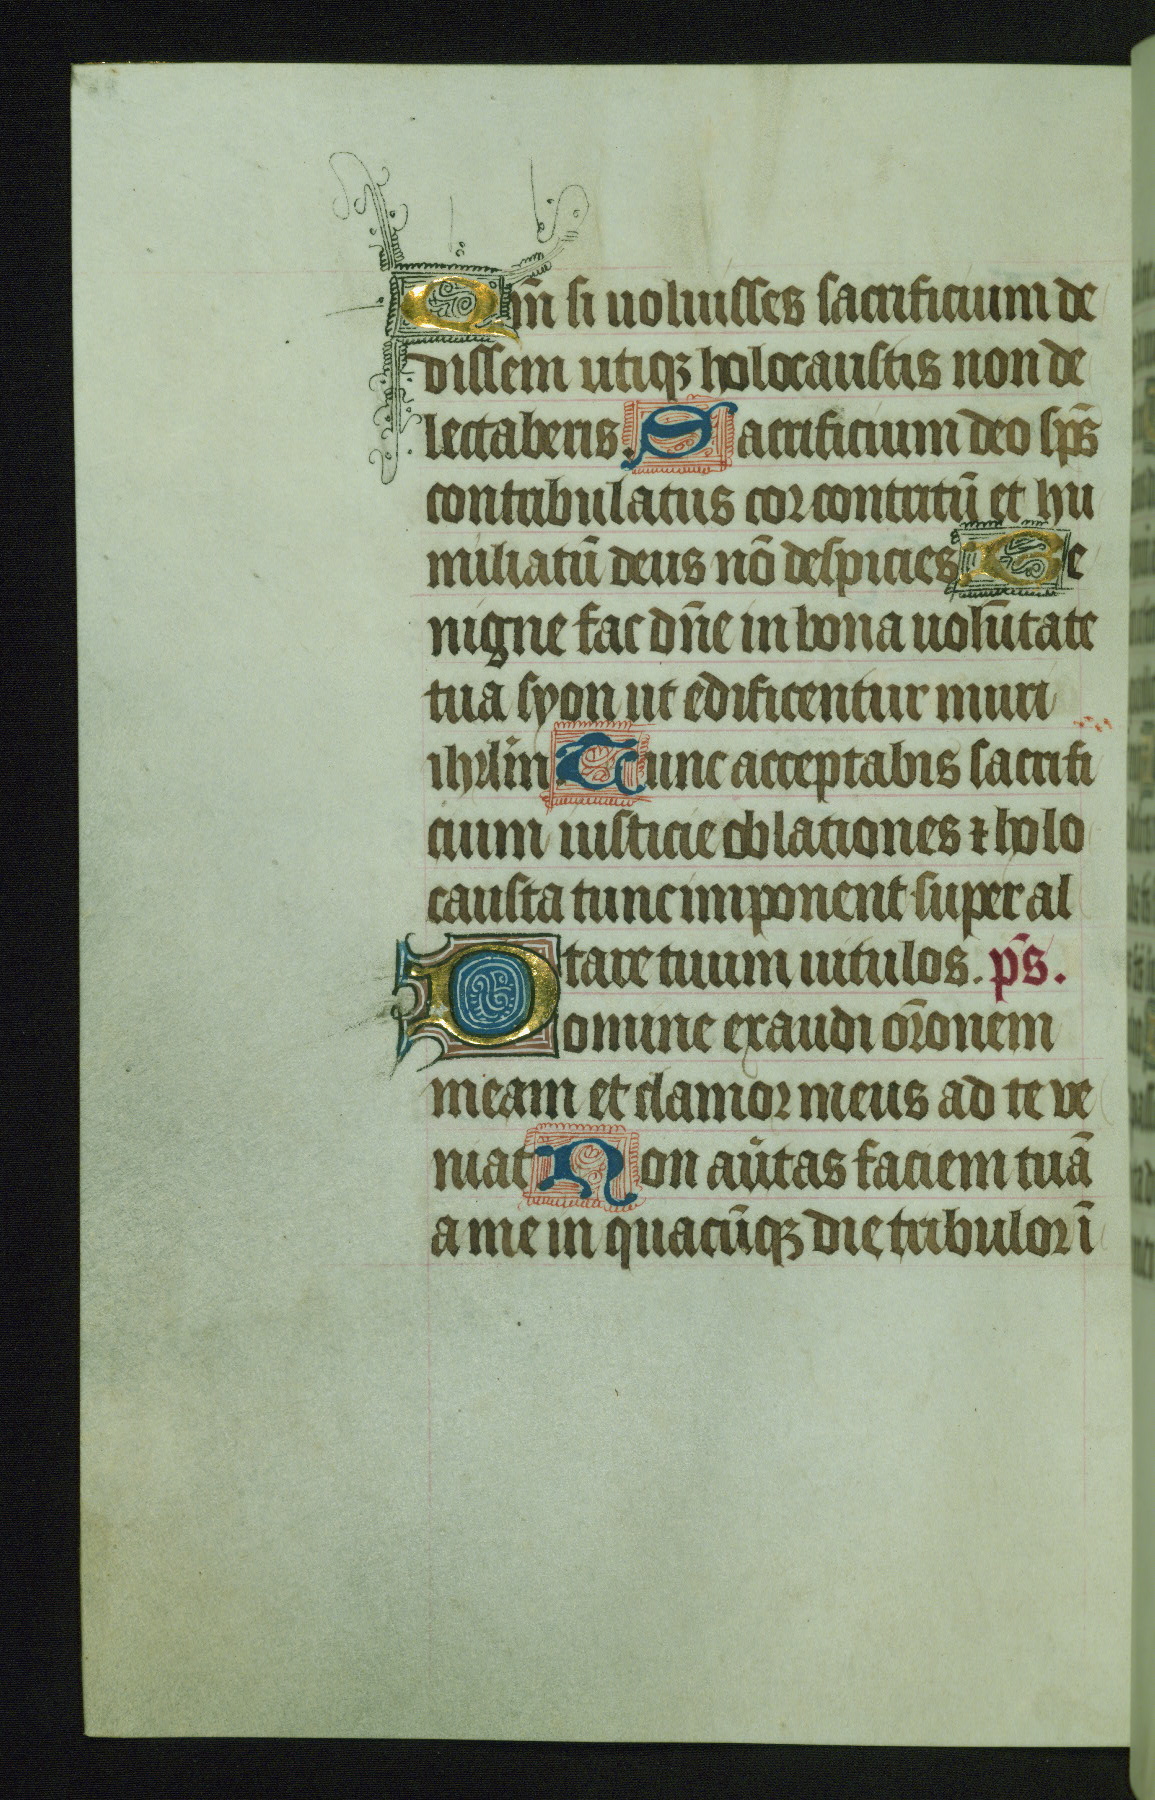 Qm̄ si uoluisses sacrificium de
dissem utiqꝫ holocaustis non de
lectaberis. Sacrificium deo sp̄s
contribulatus cor contritū et hu
miliatū deus nō despicies Be
nigne fac dn̄e in bona uolūtate
tua syon ut edificentur muri
ihrl̄m Tunc acceptabis sacrifi
cium iusticie oblationes ⁊ holo
causta tunc imponent super al
tare tuum uitulos. ps̄.
Domine exaudi or̄onem
meam et clamor meus ad te ve
niat Non au̾tas faciem tuā
a me in quacūqꝫ die tribulor ī